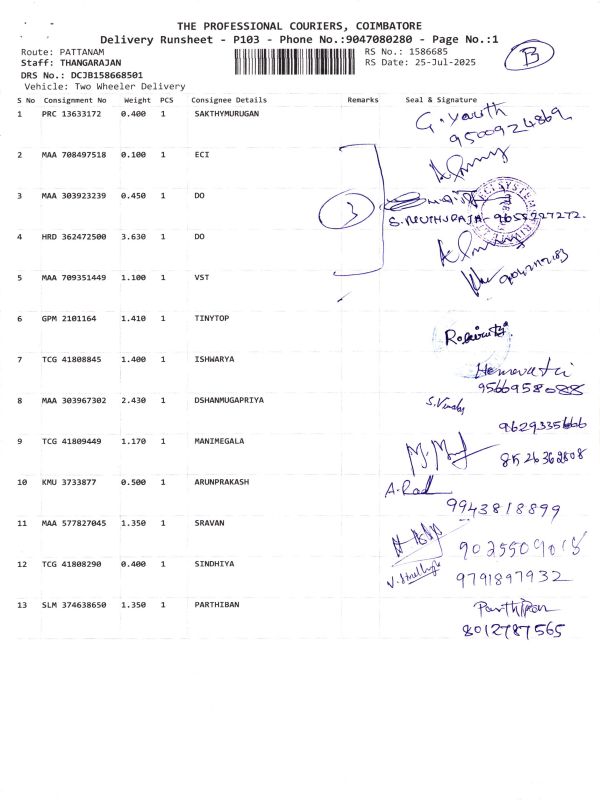 THE PROFESSIONAL COURIERS, COIMBATORE
Delivery Runsheet - P103 - Phone No.:9047080280 - Page No.:1
Route: PATTANAM RS No.: 1586685
Staff: THANGARAJAN RS Date: 25-Jul-2025
B
DRS No.: DCJB158668501
Vehicle: Two Wheeler Delivery
S No Consignment No Weight PCS Consignee Details Remarks Seal & Signature
1 PRC 13633172 0.400 1 SAKTHYMURUGAN
9500924869
2 MAA 708497518 0.100 1 ECI
3 MAA 303923239 0.450 1 DO
3
9655227272
4 HRD 362472500 3.630 1 DO
5 MAA 709351449 1.100 1 VST
6 GPM 2101164 1.410 1 TINYTOP
7 TCG 41808845 1.400 1 ISHWARYA
9566958088
8 MAA 303967302 2.430 1 DSHANMUGAPRIYA
9629335666
9 TCG 41809449 1.170 1 MANIMEGALA
8526362808
10 KMU 3733877 0.500 1 ARUNPRAKASH
9943818899
11 MAA 577827045 1.350 1 SRAVAN
12 TCG 41808290 0.400 1 SINDHIYA
9791897932
13 SLM 374638650 1.350 1 PARTHIBAN Parthiban
8012787565